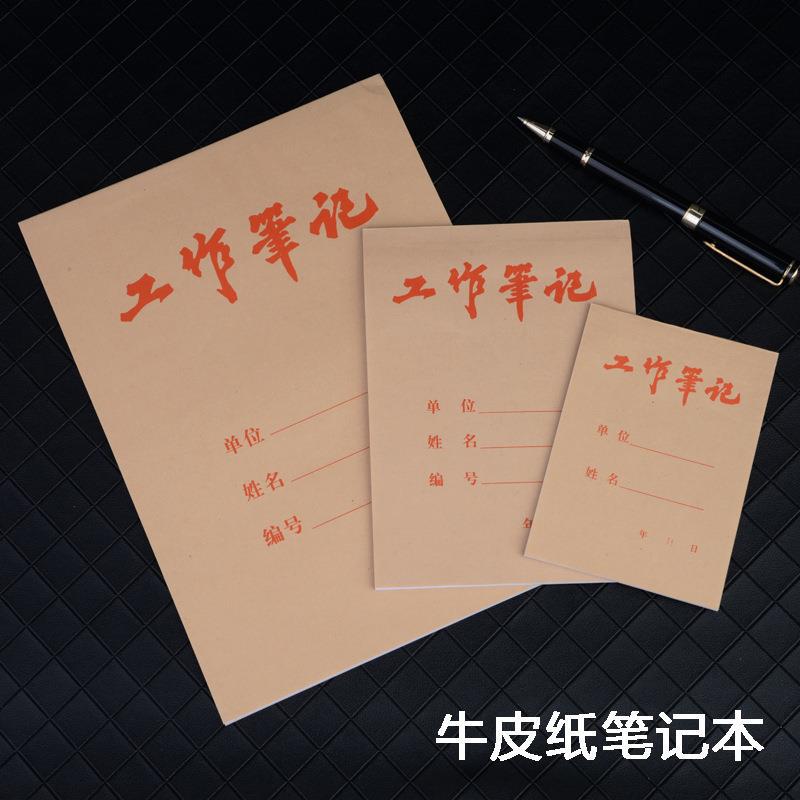 工作筆记
单位
姓名
编号
工作筆记
单 位
姓 名
编 号
工作筆记
单 位
姓 名
年 月 日
牛皮纸笔记本